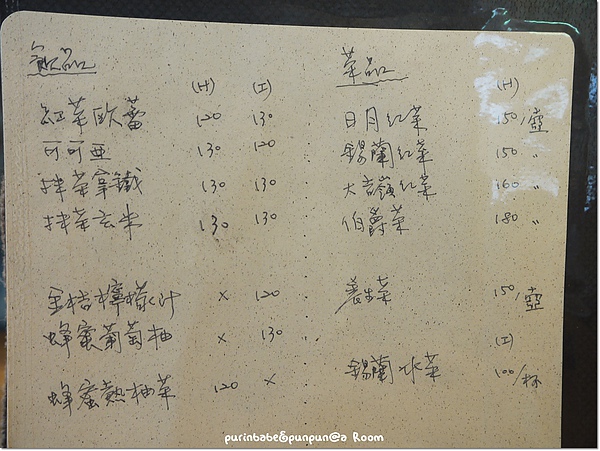 飲品
(H) (I)
紅茶歐蕾 120 130
可可亞 130 120
抹茶拿鐵 130 130
抹茶玄米 130 130
金桔檸檬汁 x 120
蜂蜜葡萄柚 x 130
蜂蜜熱柚茶 120 x
茶品
(H)
日月紅茶 150/壺
錫蘭紅茶 150 〃
大吉嶺紅茶 160 〃
伯爵茶 180 〃
養生茶 150/壺
(I)
錫蘭冰茶 100/杯
purinbabe&punpun@a Room